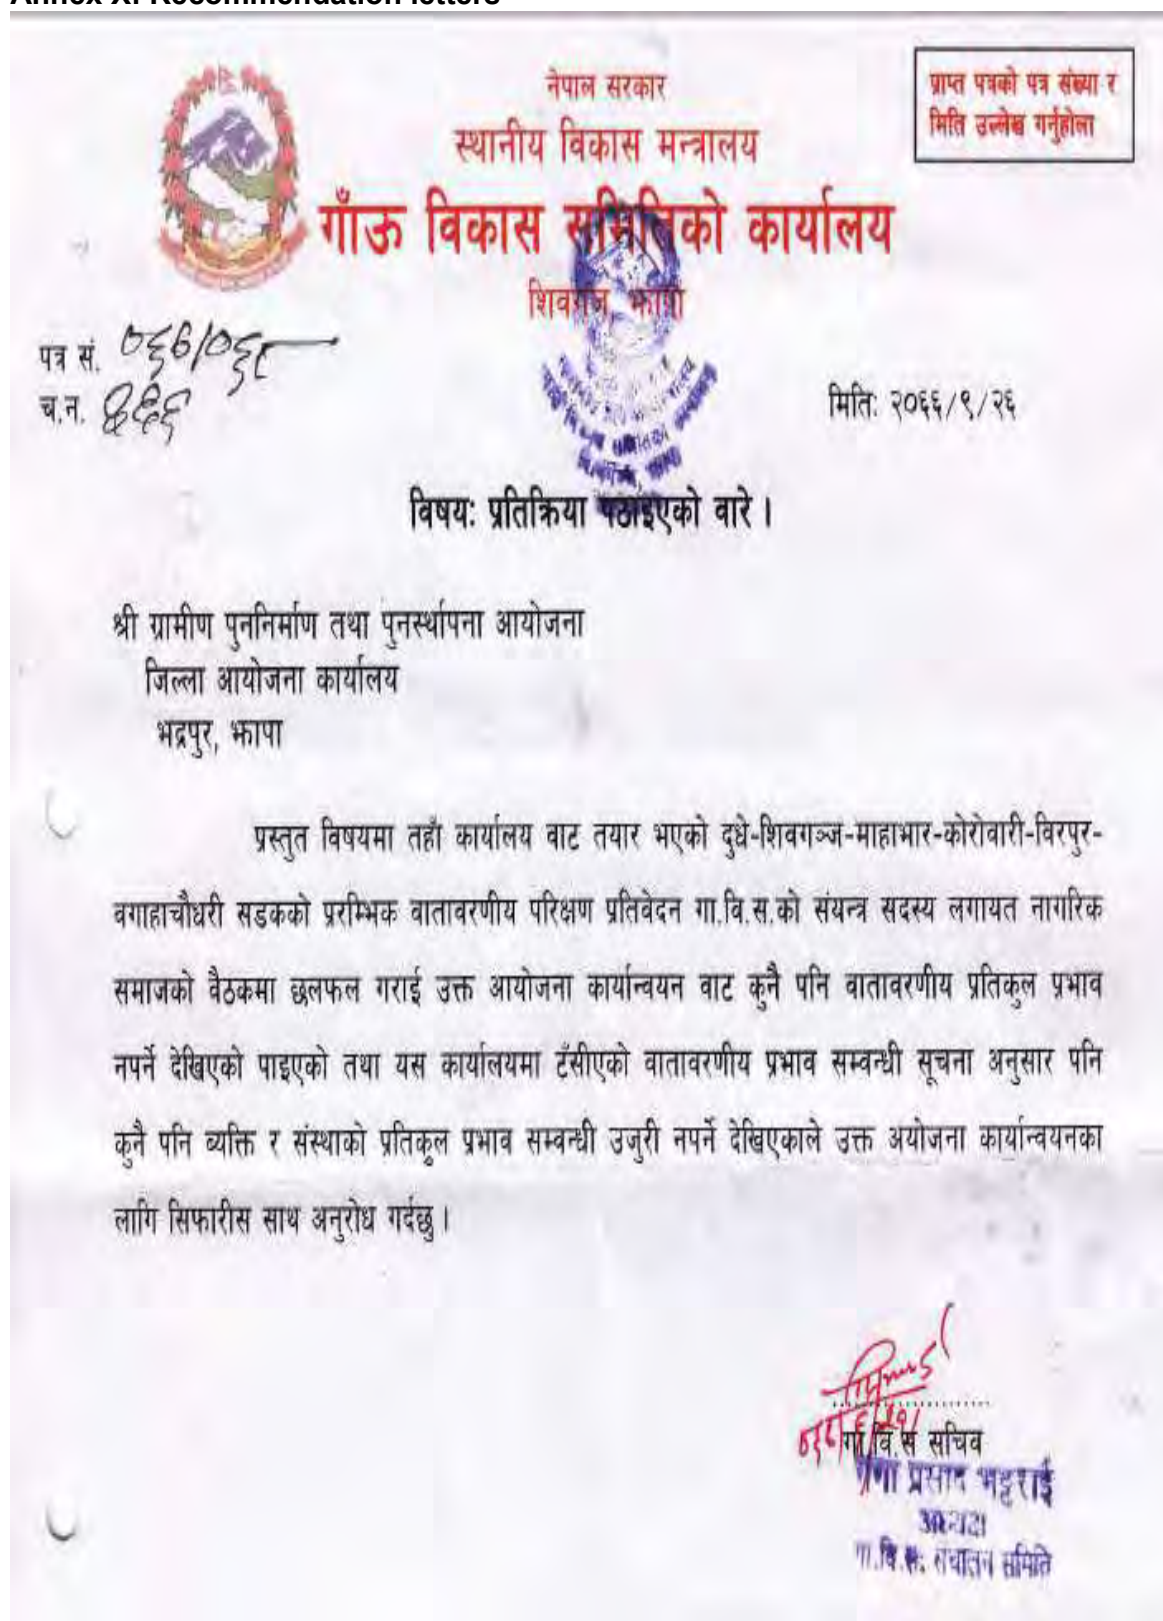 Annex XI Recommendation letters
नेपाल सरकार
स्थानीय विकास मन्त्रालय
गाँऊ विकास समितिको कार्यालय
शिवगंज, झापा
प्राप्त पत्रको पत्र संख्या र
मिति उल्लेख गर्नुहोला
पत्र सं. ०६६/०६८
च.न.
मितिः २०६६/९/२६
विषयः प्रतिक्रिया पठाइएको वारे ।
श्री ग्रामीण पुननिर्माण तथा पुनर्स्थापना आयोजना
जिल्ला आयोजना कार्यालय
भद्रपुर, झापा
प्रस्तुत विषयमा तहाँ कार्यालय वाट तयार भएको दुधे-शिवगञ्ज-माहाभार-कोरोवारी-विरपुर-
वगाहाचौधरी सडकको प्ररम्भिक वातावरणीय परिक्षण प्रतिवेदन गा.वि.स.को संयन्त्र सदस्य लगायत नागरिक
समाजको वैठकमा छलफल गराई उक्त आयोजना कार्यान्वयन वाट कुनै पनि वातावरणीय प्रतिकुल प्रभाव
नपर्ने देखिएको पाइएको तथा यस कार्यालयमा टँसीएको वातावरणीय प्रभाव सम्वन्धी सूचना अनुसार पनि
कुनै पनि व्यक्ति र संस्थाको प्रतिकुल प्रभाव सम्वन्धी उजुरी नपर्ने देखिएकाले उक्त अयोजना कार्यान्वयनका
लागि सिफारीस साथ अनुरोध गर्दछु ।
गा.वि.स सचिव
प्रसाद भट्टराई
अध्यक्ष
गा.वि.स. संचालन समिति